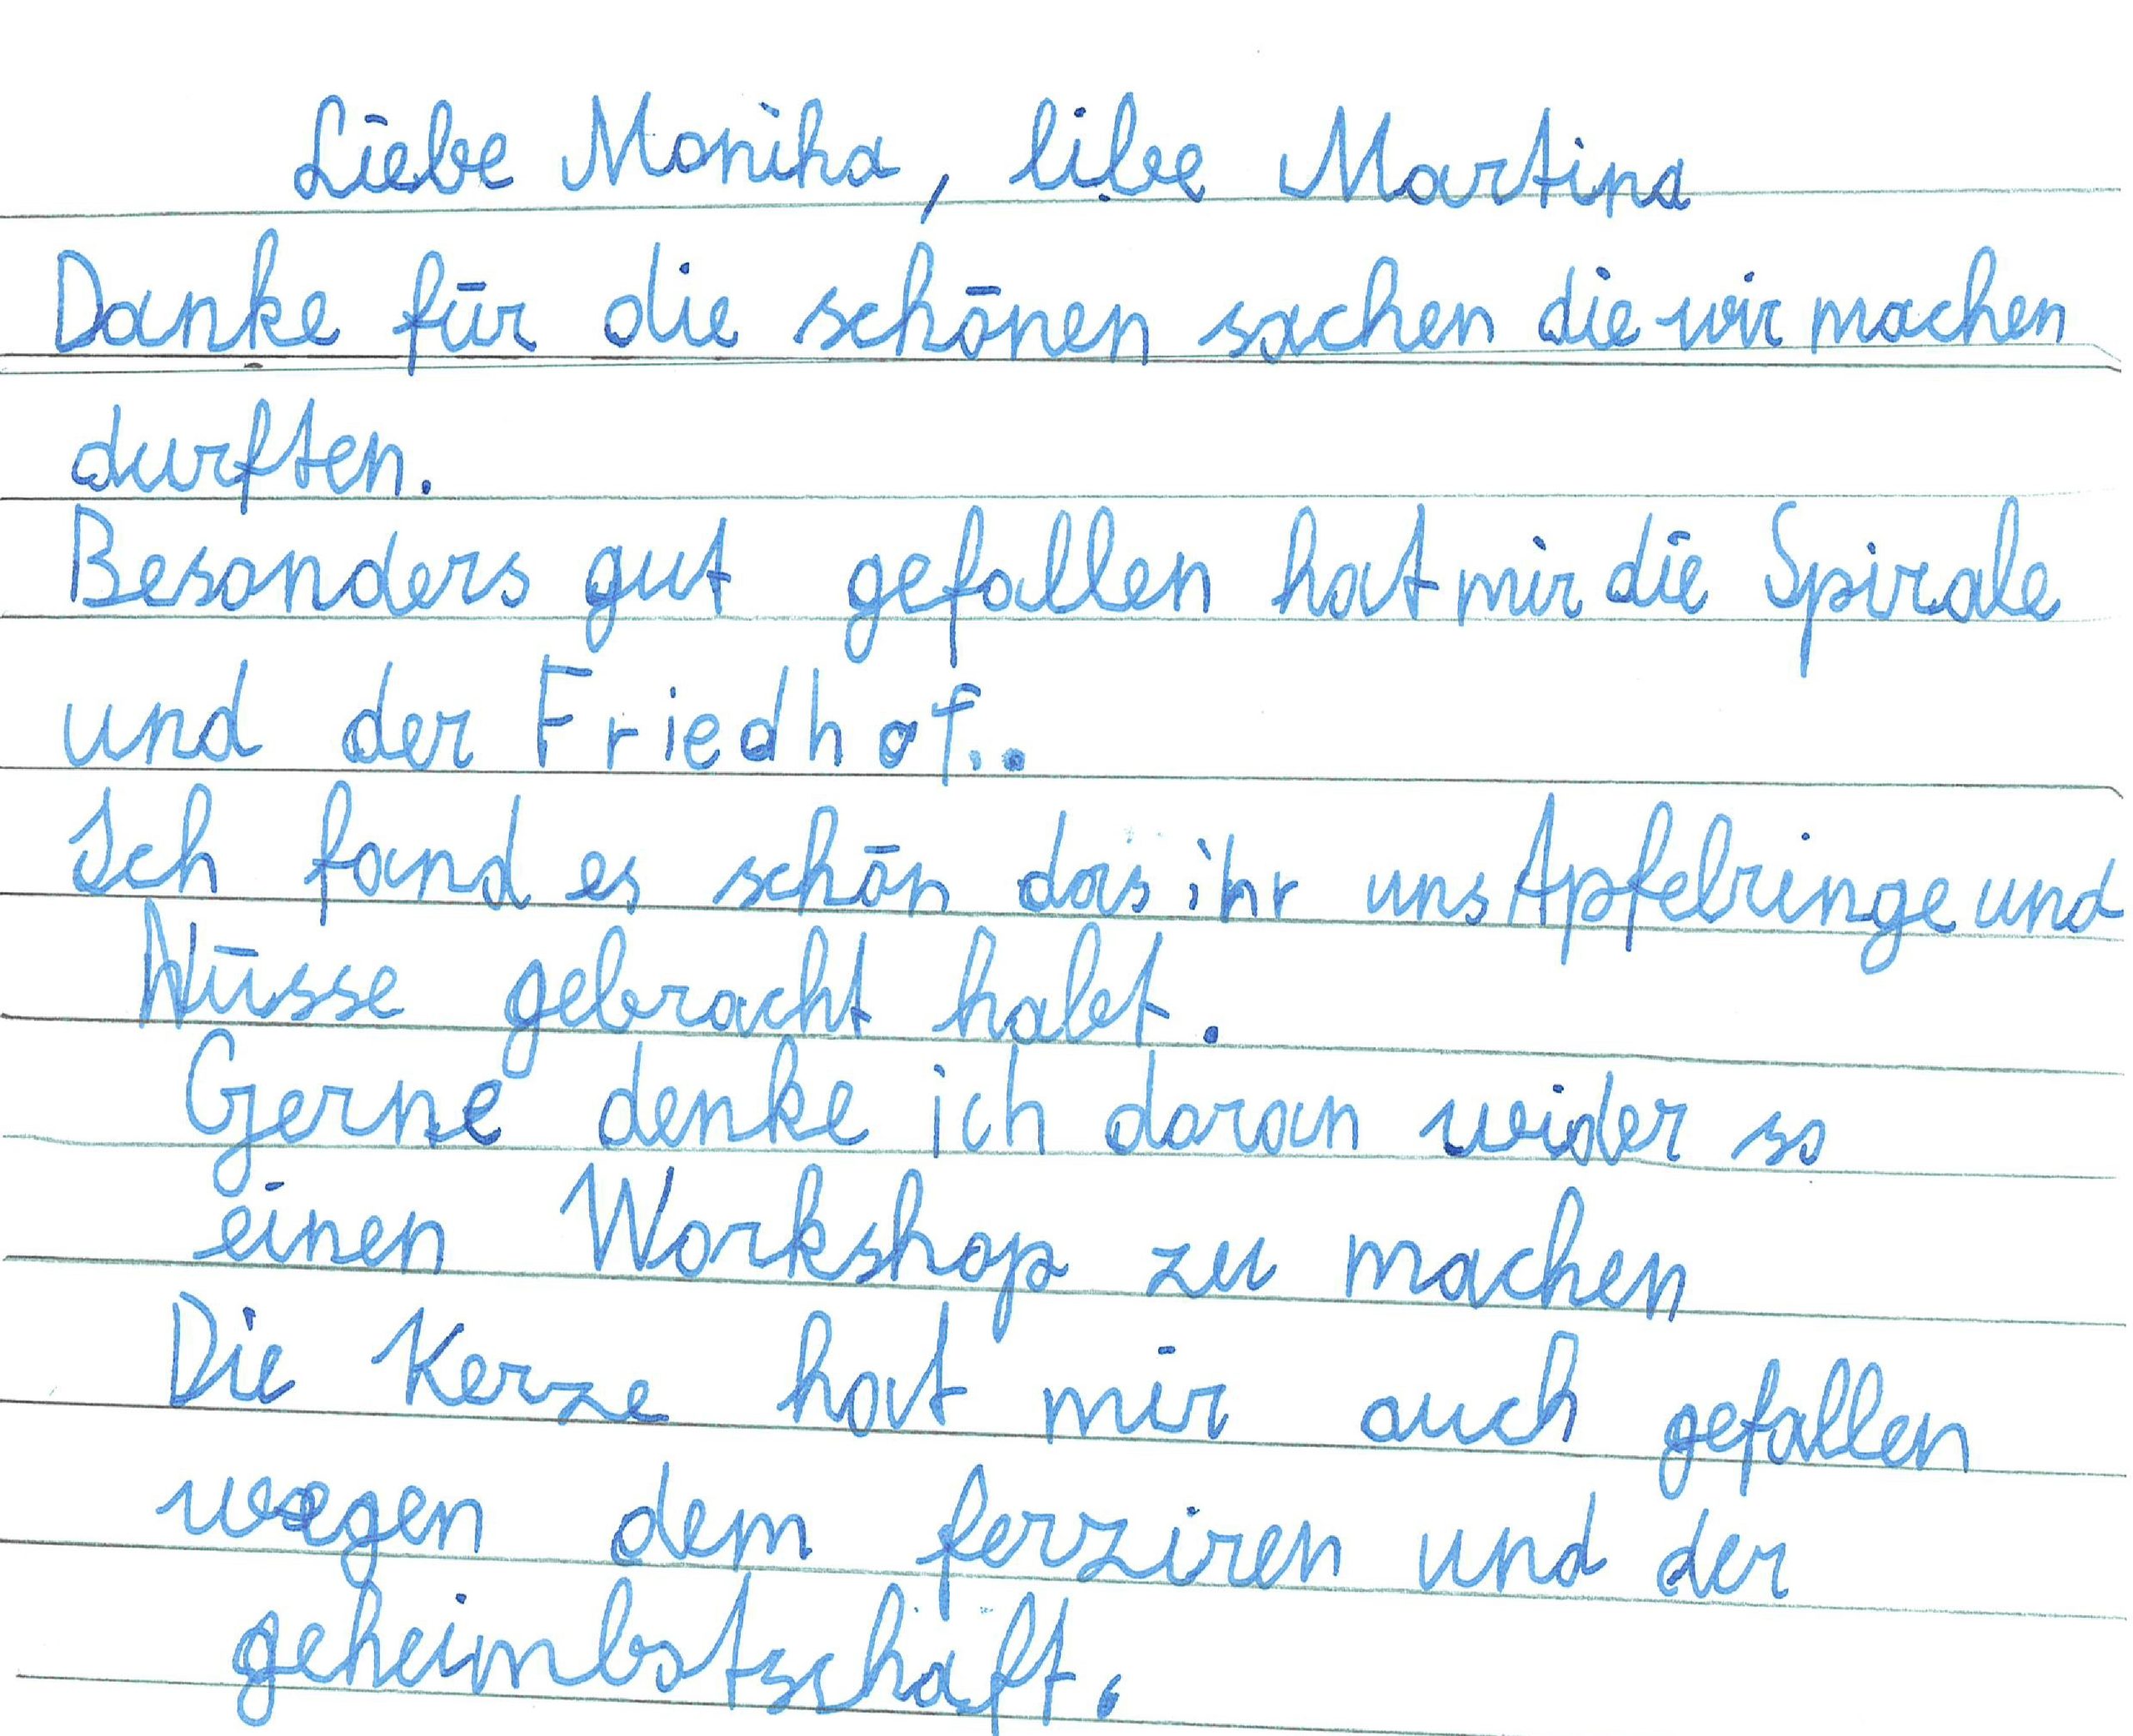 Liebe Monika, libe Martina
Danke für die schönen sachen die wir machen
durften.
Besonders gut gefallen hat mir die Spirale
und der Friedhof..
Ich fand es schön das ihr uns Apfelringe und
Nüsse gebracht habt.
Gerne denke ich daran weider so
einen Workshop zu machen
Die Kerze hat mir auch gefallen
wegen dem ferziren und der
geheimbotschaft.